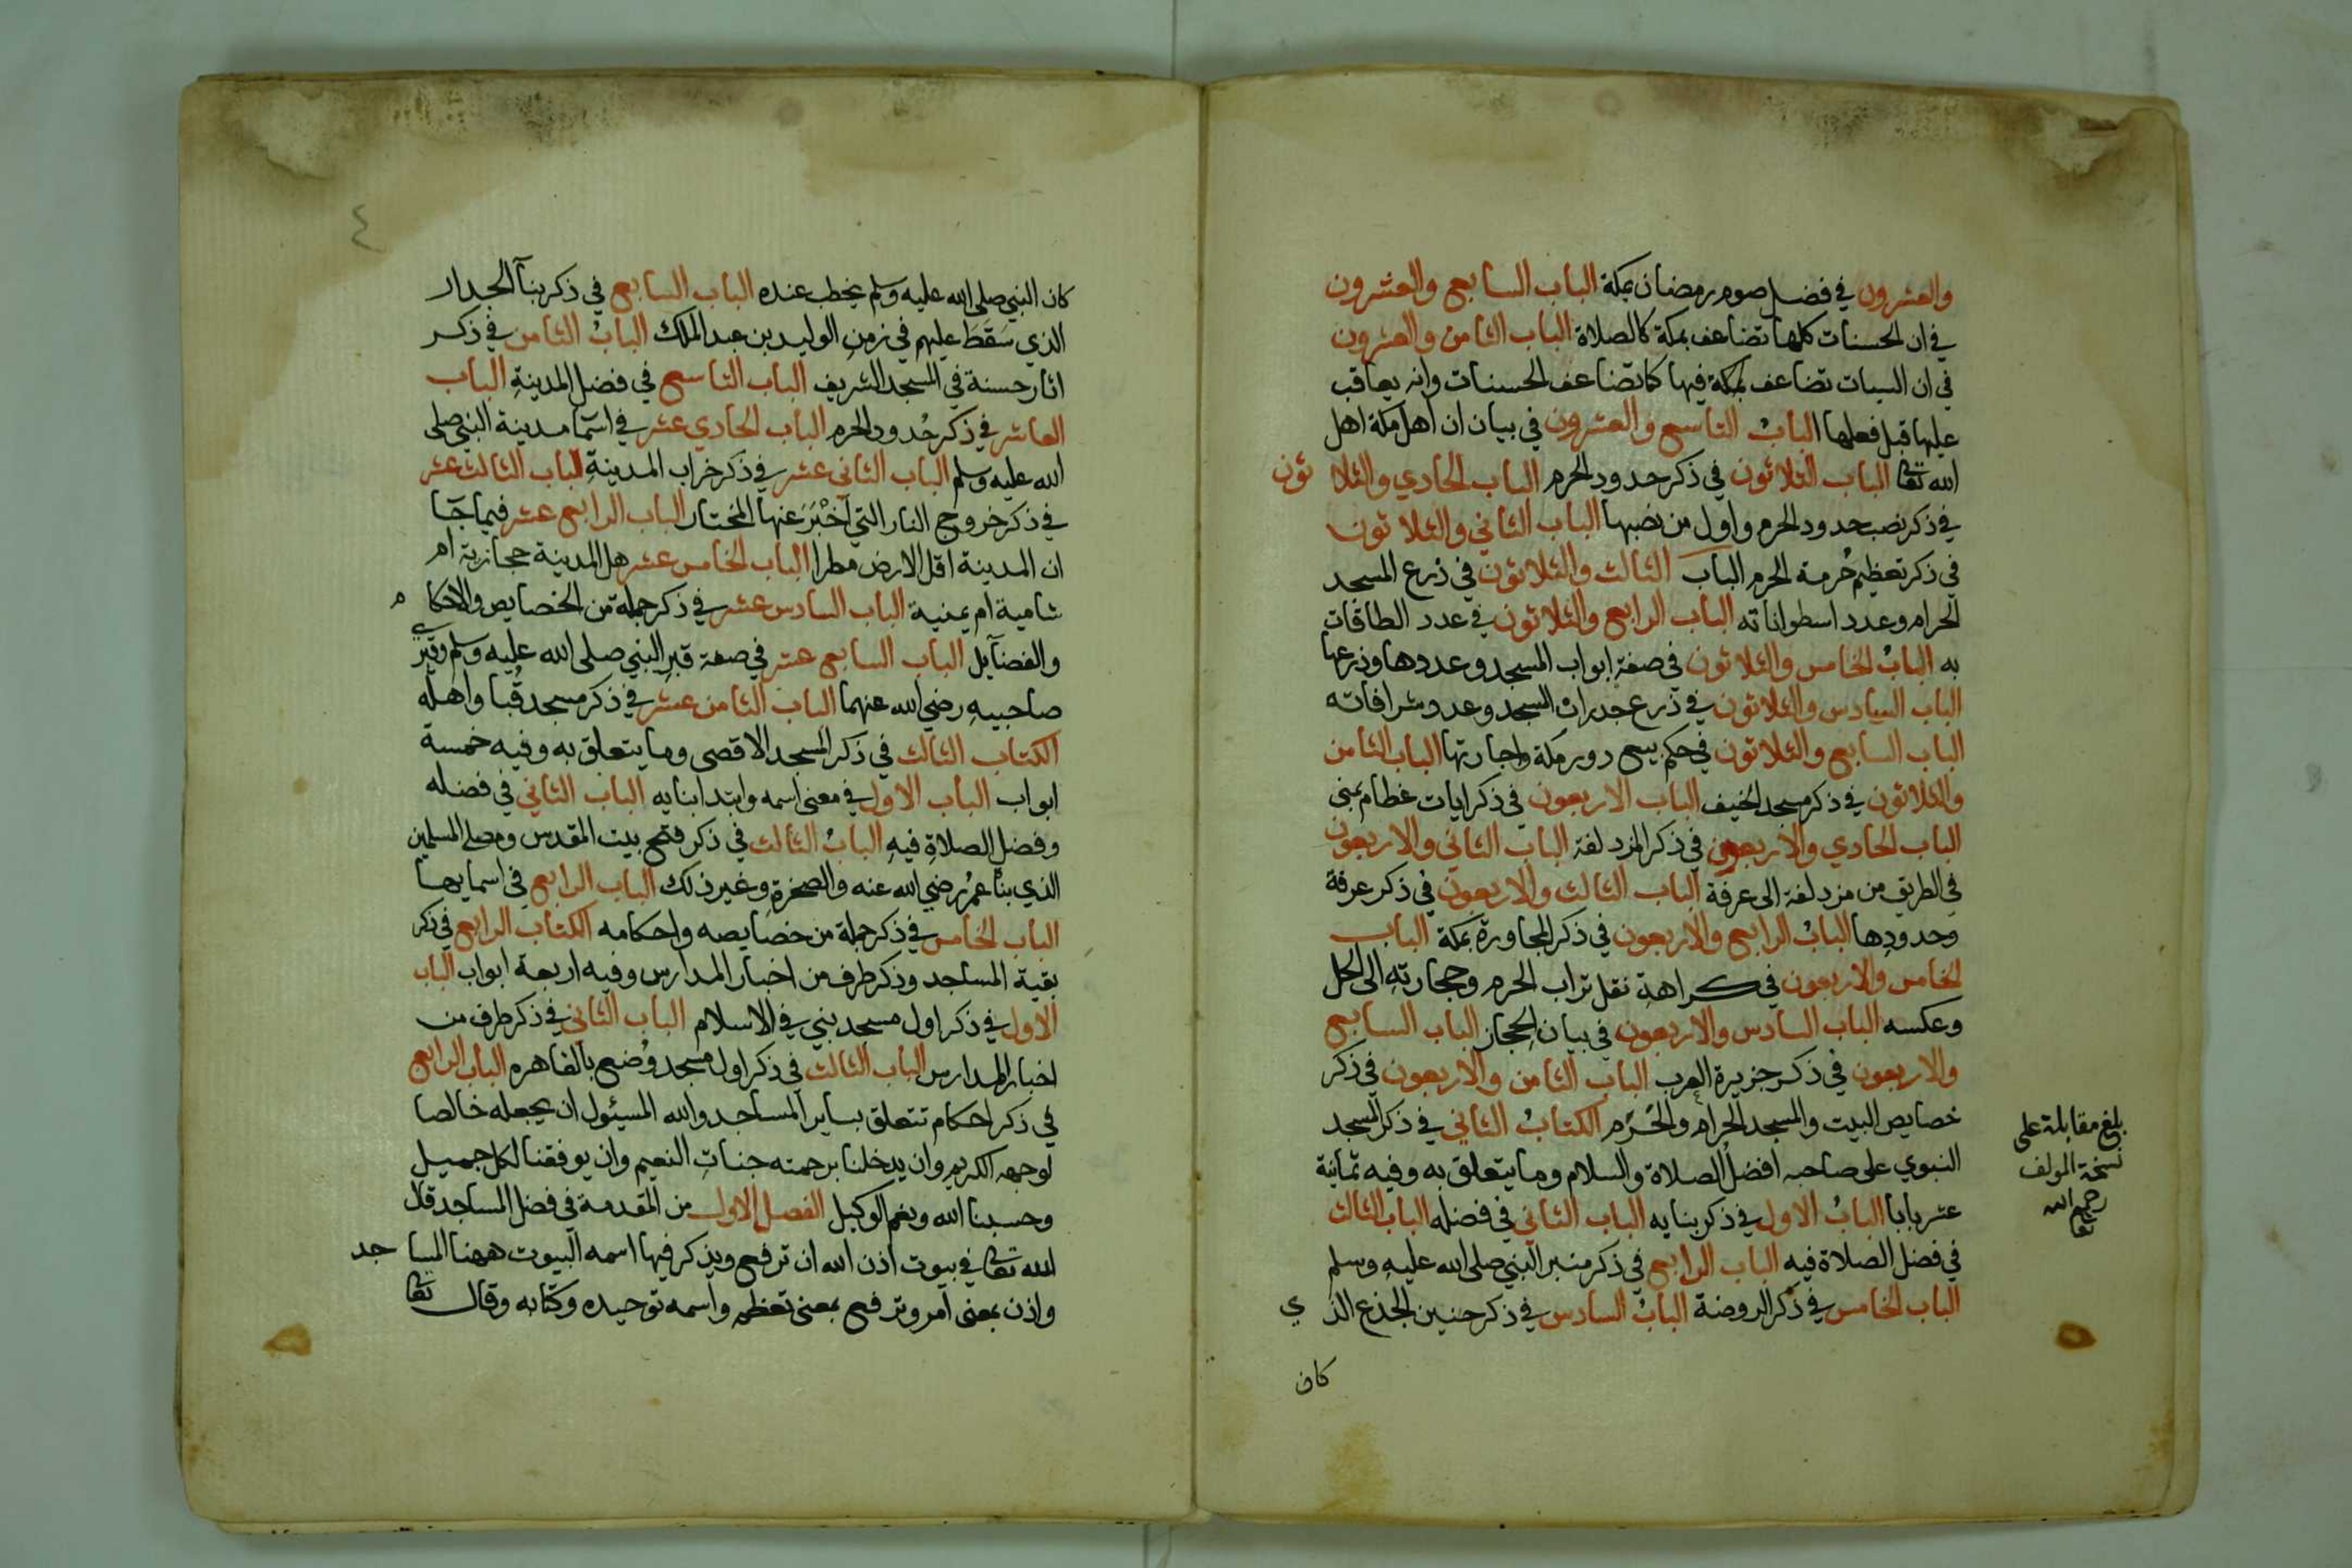 والعشرون في فضل صوم رمضان بمكة الباب السابع والعشرون
في ان الحسنات كلها تضاعف بمكة كالصلاة الباب الثامن والعشرون
في ان السيات تضاعف بمكة فيها كما تضاعف الحسنات وانه يعاقب
عليها قبل فعلها البابُ التاسع والعشرون في بيان ان اهل مكة اهل
الله تعالى الباب الثلاثون في ذكر حدود الحرم الباب الحادي والثلاثون
في ذكر نصب حدود الحرم واول من نصبها الباب الثاني والثلاثون
في ذكر تعظيم حُرمة الحرم الباب الثالث والثلاثون في ذرع المسجد
الحرام وعدد اسطواناته الباب الرابع والثلاثون في عدد الطاقات
به البابُ الخامس والثلاثون في صفة ابواب المسجد وعددها وذرعها
الباب السادس والثلاثون في ذرع جدران المسجد وعدد شرافاته
الباب السابع والثلاثون في حكم بيع دور مكة واجارتها الباب الثامن
والثلاثون في ذكر مسجد الخيف الباب الاربعون في ذكر ايات عظام بمنى
الباب الحادي والاربعون في ذكر المزدلفة الباب الثاني والاربعون
في الطريق من مزدلفة الى عرفة الباب الثالث والاربعون في ذكر عرفة
وحدودها البابُ الرابع والاربعون في ذكر المجاورة بمكة الباب
الخامس والاربعون في كراهة نقل تراب الحرم وحجارته الى الحل
وعكسه الباب السادس والاربعون في بيان الحجاز الباب السابع
والاربعون في ذكر جزيرة العرب الباب الثامن والاربعون في ذكر
خصايص البيت والمسجد الحرام والحَرَم الكتابُ الثاني في ذكر المسجد
النبوي على صاحبه افضل الصلاة والسلام وما يتعلق به وفيه ثمانية
عشر بابا البابُ الاول في ذكر بنايه الباب الثاني في فضله الباب الثالث
في فضل الصلاة فيه الباب الرابع في ذكر منبر النبي صلى الله عليه وسلم
الباب الخامس في ذكر الروضة البابُ السادس في ذكر حنين الجذع الذي
كان
بلغ مقابلة على
نسخة المولف
رحمه الله
تعالى
٤
كان النبي صلى الله عليه وسلم يخطب عنده الباب السابع في ذكر بنآ الجدار
الذي سَقَطَ عليهم في زمن الوليد بن عبد الملك البابُ الثامن في ذكر
اثار حسنة في المسجد الشريف الباب التاسع في فضل المدينة الباب
العاشر في ذكر حُدود الحرم الباب الحادي عشر في اسمَا مدينة النبي صلى
الله عليه وسلم الباب الثاني عشر في ذكر خراب المدينة الباب الثالث عشر
في ذكر خروج النار التي اَخْبَرَ عنها المختار الباب الرابع عشر فيما جَا
ان المدينة اقل الارض مطرا الباب الخامس عشر هل المدينة حجازية ام
شامية ام يمنية الباب السادس عشر في ذكر جملة من الخصايص والاحكام
والفضآيل الباب السابع عشر في صفة قبر النبي صلى الله عليه وسلم وقبري
صاحبيه رضي الله عنهما الباب الثامن عشر في ذكر مسجد قُبا واهله
الكتاب الثالث في ذكر المسجد الاقصى وما يتعلق به وفيه خمسة
ابواب الباب الاول في معنى اسمه وابتدا بنايه الباب الثاني في فضله
وفضل الصلاة فيه البابُ الثالث في ذكر فتح بيت المقدس ومصلى المسلمين
الذي بنا عمر رضي الله عنه والصخرة وغير ذلك الباب الرابع في اسمايها
الباب الخامس في ذكر جملة من خصايصه واحكامه الكتاب الرابع في ذكر
بقية المساجد وذكر طرف من اخبار المدارس وفيه اربعة ابواب الباب
الاول في ذكر اول مسجد بني في الاسلام الباب الثاني في ذكر طرف من
اخبار المدارس الباب الثالث في ذكر اول مسجد وُضع بالقاهره الباب الرابع
في ذكر احكام تتعلق بساير المساجد والله المسئول ان يجعله خالصا
لوجهه الكريم وان يدخلنا برحمته جنات النعيم وان يوفقنا لكل جميل
وحسبنا الله ونعم الوكيل الفصل الاول من المقدمة في فضل المساجد قال
الله تعالى في بيوت اذن الله ان ترفع ويذكر فيها اسمه البيوت ههنا المساجد
واذن بمعنى امر وترفع بمعنى تعظم واسمه توحيده وكتابه وقال تعالى